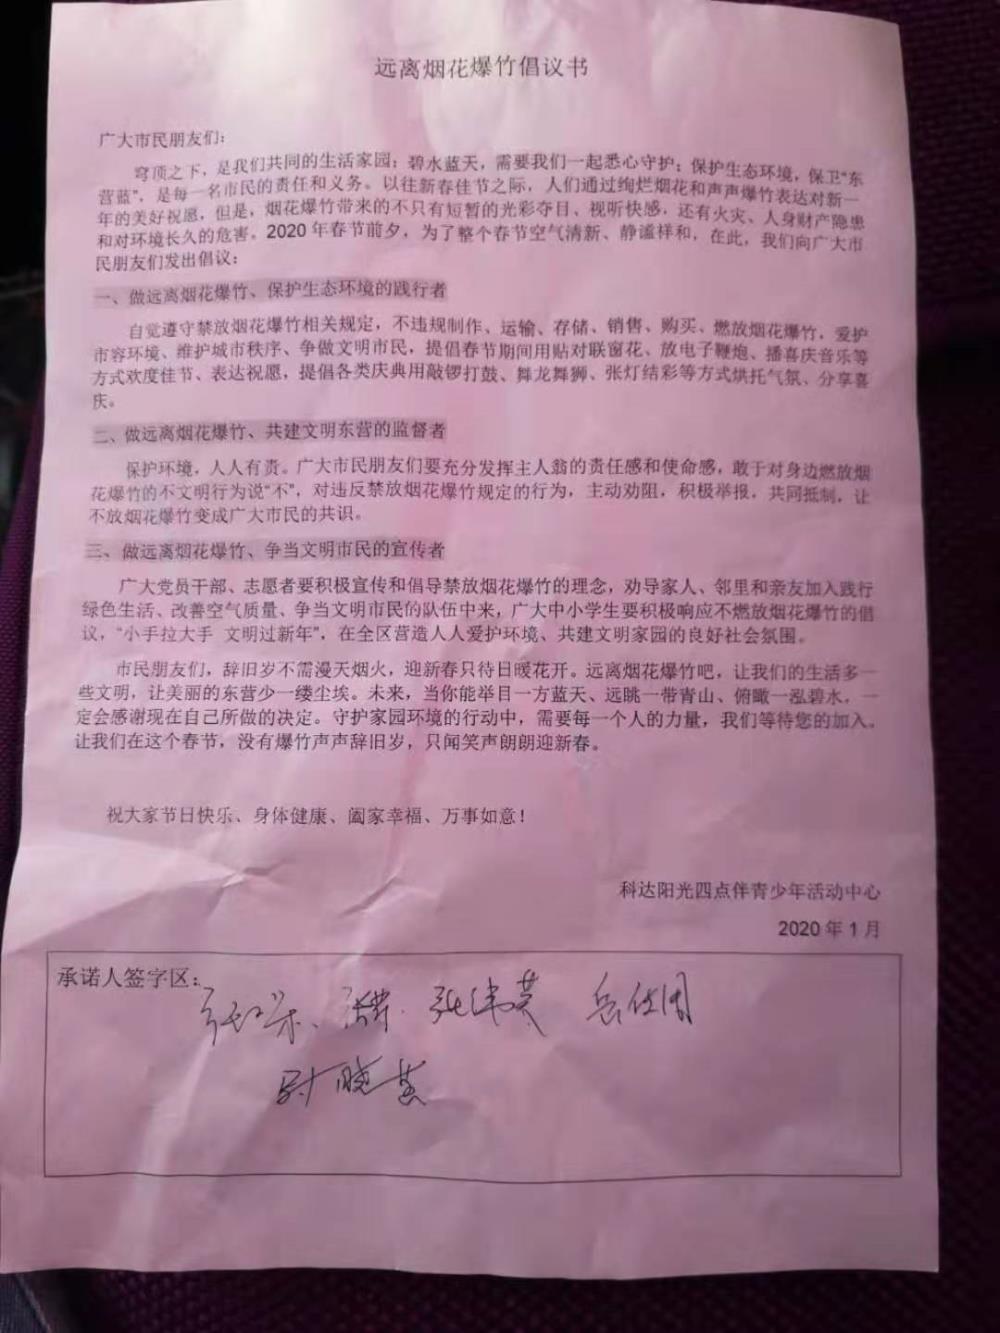 远离烟花爆竹倡议书
广大市民朋友们：
穹顶之下，是我们共同的生活家园；碧水蓝天，需要我们一起悉心守护；保护生态环境，保卫“东
营蓝”，是每一名市民的责任和义务。以往新春佳节之际，人们通过绚烂烟花和声声爆竹表达对新一
年的美好祝愿，但是，烟花爆竹带来的不只有短暂的光彩夺目、视听快感，还有火灾、人身财产隐患
和对环境长久的危害。2020年春节前夕，为了整个春节空气清新、静谧祥和，在此，我们向广大市
民朋友们发出倡议：
一、做远离烟花爆竹、保护生态环境的践行者
自觉遵守禁放烟花爆竹相关规定，不违规制作、运输、存储、销售、购买、燃放烟花爆竹，爱护
市容环境、维护城市秩序、争做文明市民，提倡春节期间用贴对联窗花、放电子鞭炮、播喜庆音乐等
方式欢度佳节、表达祝愿，提倡各类庆典用敲锣打鼓、舞龙舞狮、张灯结彩等方式烘托气氛、分享喜
庆。
二、做远离烟花爆竹、共建文明东营的监督者
保护环境，人人有责。广大市民朋友们要充分发挥主人翁的责任感和使命感，敢于对身边燃放烟
花爆竹的不文明行为说“不”，对违反禁放烟花爆竹规定的行为，主动劝阻，积极举报，共同抵制，让
不放烟花爆竹变成广大市民的共识。
三、做远离烟花爆竹、争当文明市民的宣传者
广大党员干部、志愿者要积极宣传和倡导禁放烟花爆竹的理念，劝导家人、邻里和亲友加入践行
绿色生活、改善空气质量、争当文明市民的队伍中来，广大中小学生要积极响应不燃放烟花爆竹的倡
议，“小手拉大手 文明过新年”，在全区营造人人爱护环境、共建文明家园的良好社会氛围。
市民朋友们，辞旧岁不需漫天烟火，迎新春只待日暖花开。远离烟花爆竹吧，让我们的生活多一
些文明，让美丽的东营少一缕尘埃。未来，当你能举目一方蓝天、远眺一带青山、俯瞰一泓碧水，一
定会感谢现在自己所做的决定。守护家园环境的行动中，需要每一个人的力量，我们等待您的加入。
让我们在这个春节，没有爆竹声声辞旧岁，只闻笑声朗朗迎新春。
祝大家节日快乐、身体健康、阖家幸福、万事如意！
科达阳光四点伴青少年活动中心
2020年1月
承诺人签字区：
张伟英
尉晓燕